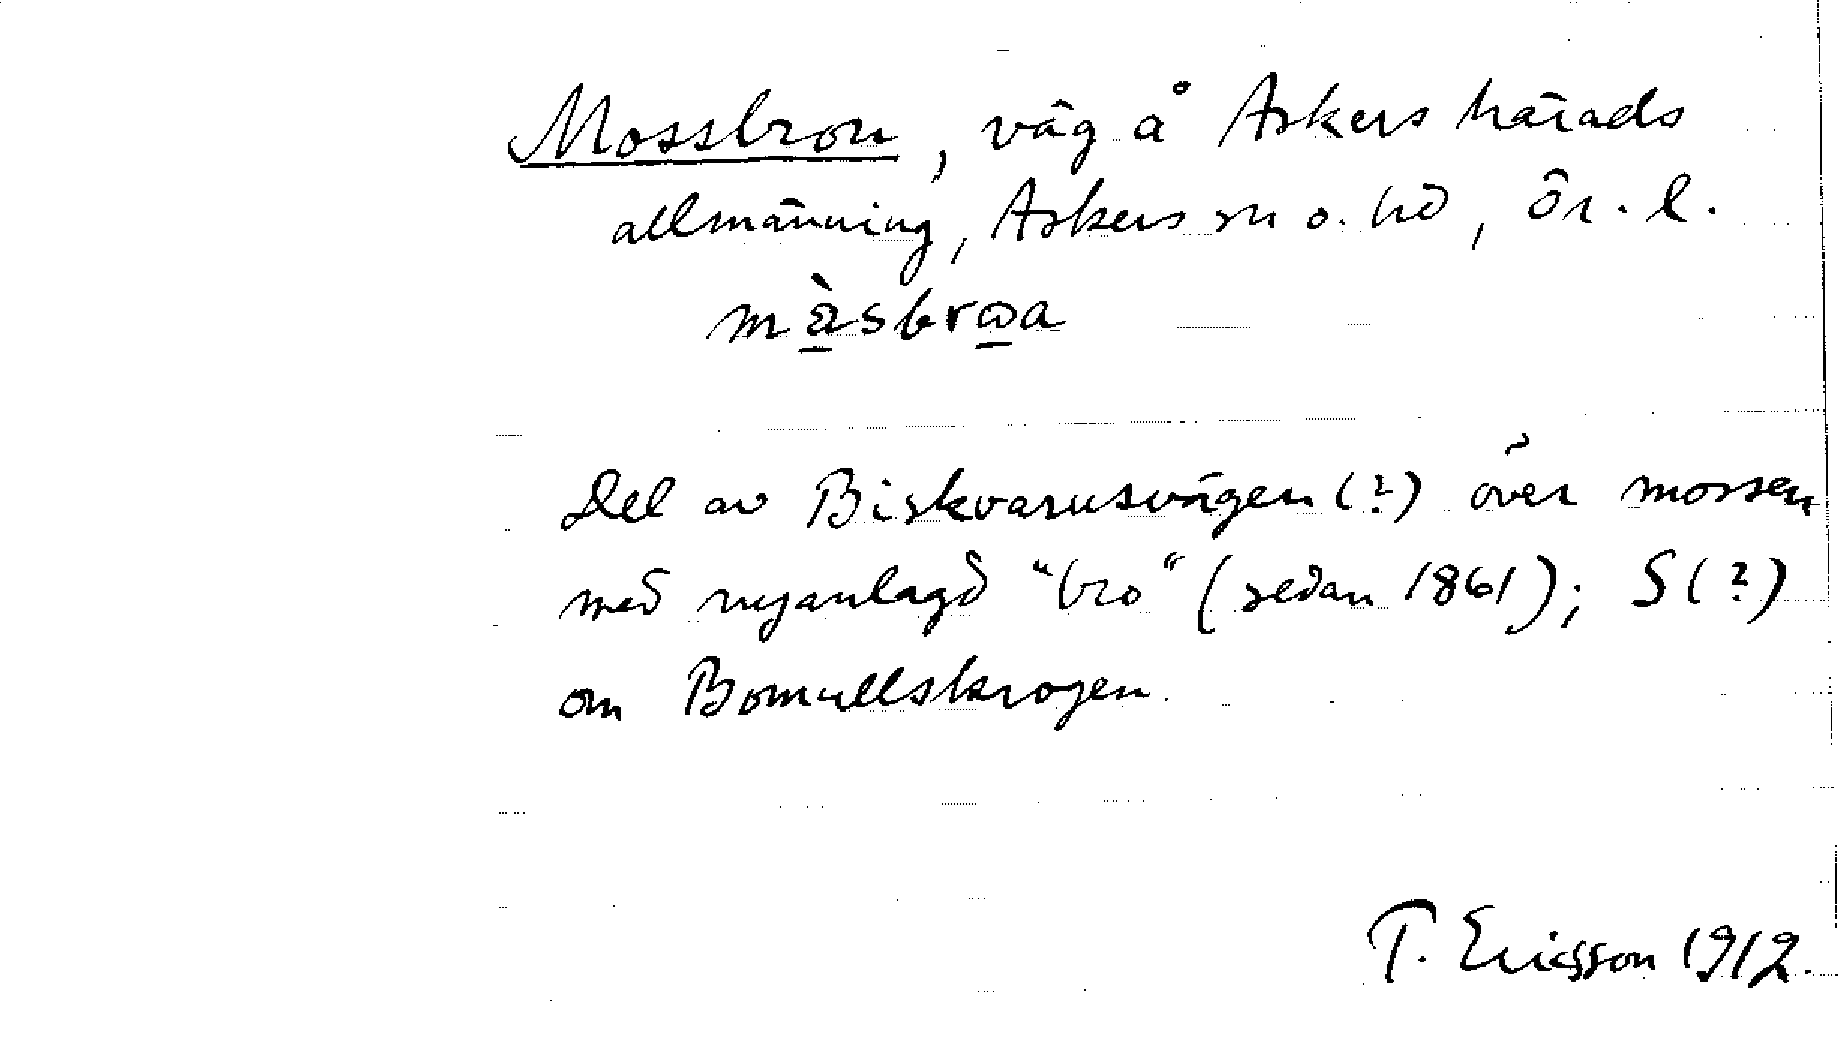 Mossbron, väg å Askers härads
allmänning, Askers sn o. hd, Ör. l.
Del av Biskvarnsvägen (?) över mossen
med nyanlagd "bro" (sedan 1861); S (?)
om Bomullskrogen.
T. Ericsson 1912.